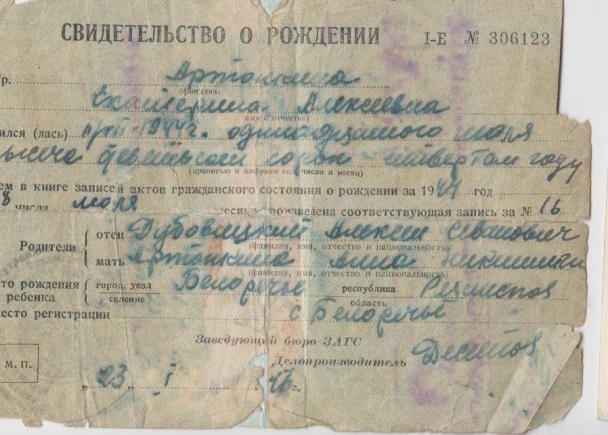 СВИДЕТЕЛЬСТВО О РОЖДЕНИИ I-Е № 306123
гр. Артошкина
(фамилия,
Екатерина Алексеевна
имя и отчество)
ился (лась) 11/III-1944г. одинадцатого
сорок четвертом году
(прописью и цифрами год, число и месяц)
ем в книге записей актов гражданского состояния о рождении за 1944 год
8 числа месяца произведена соответствующая запись за № 16
Родители
отец Дубовицкий Алексей Иванович
(фамилия, имя, отчество и национальность)
мать Артошкина
(фамилия, имя, отчество и национальность)
то рождения ребенка
город, уезд селение Белоречье республика область
есто регистрации с Белоречье
Заведующий бюро ЗАГС
Делопроизводитель
М. П.
„23" I г.